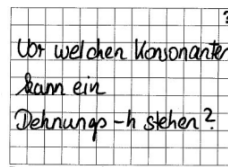 Vor welchen Konsonanten
kann ein
Dehnungs -h stehen?